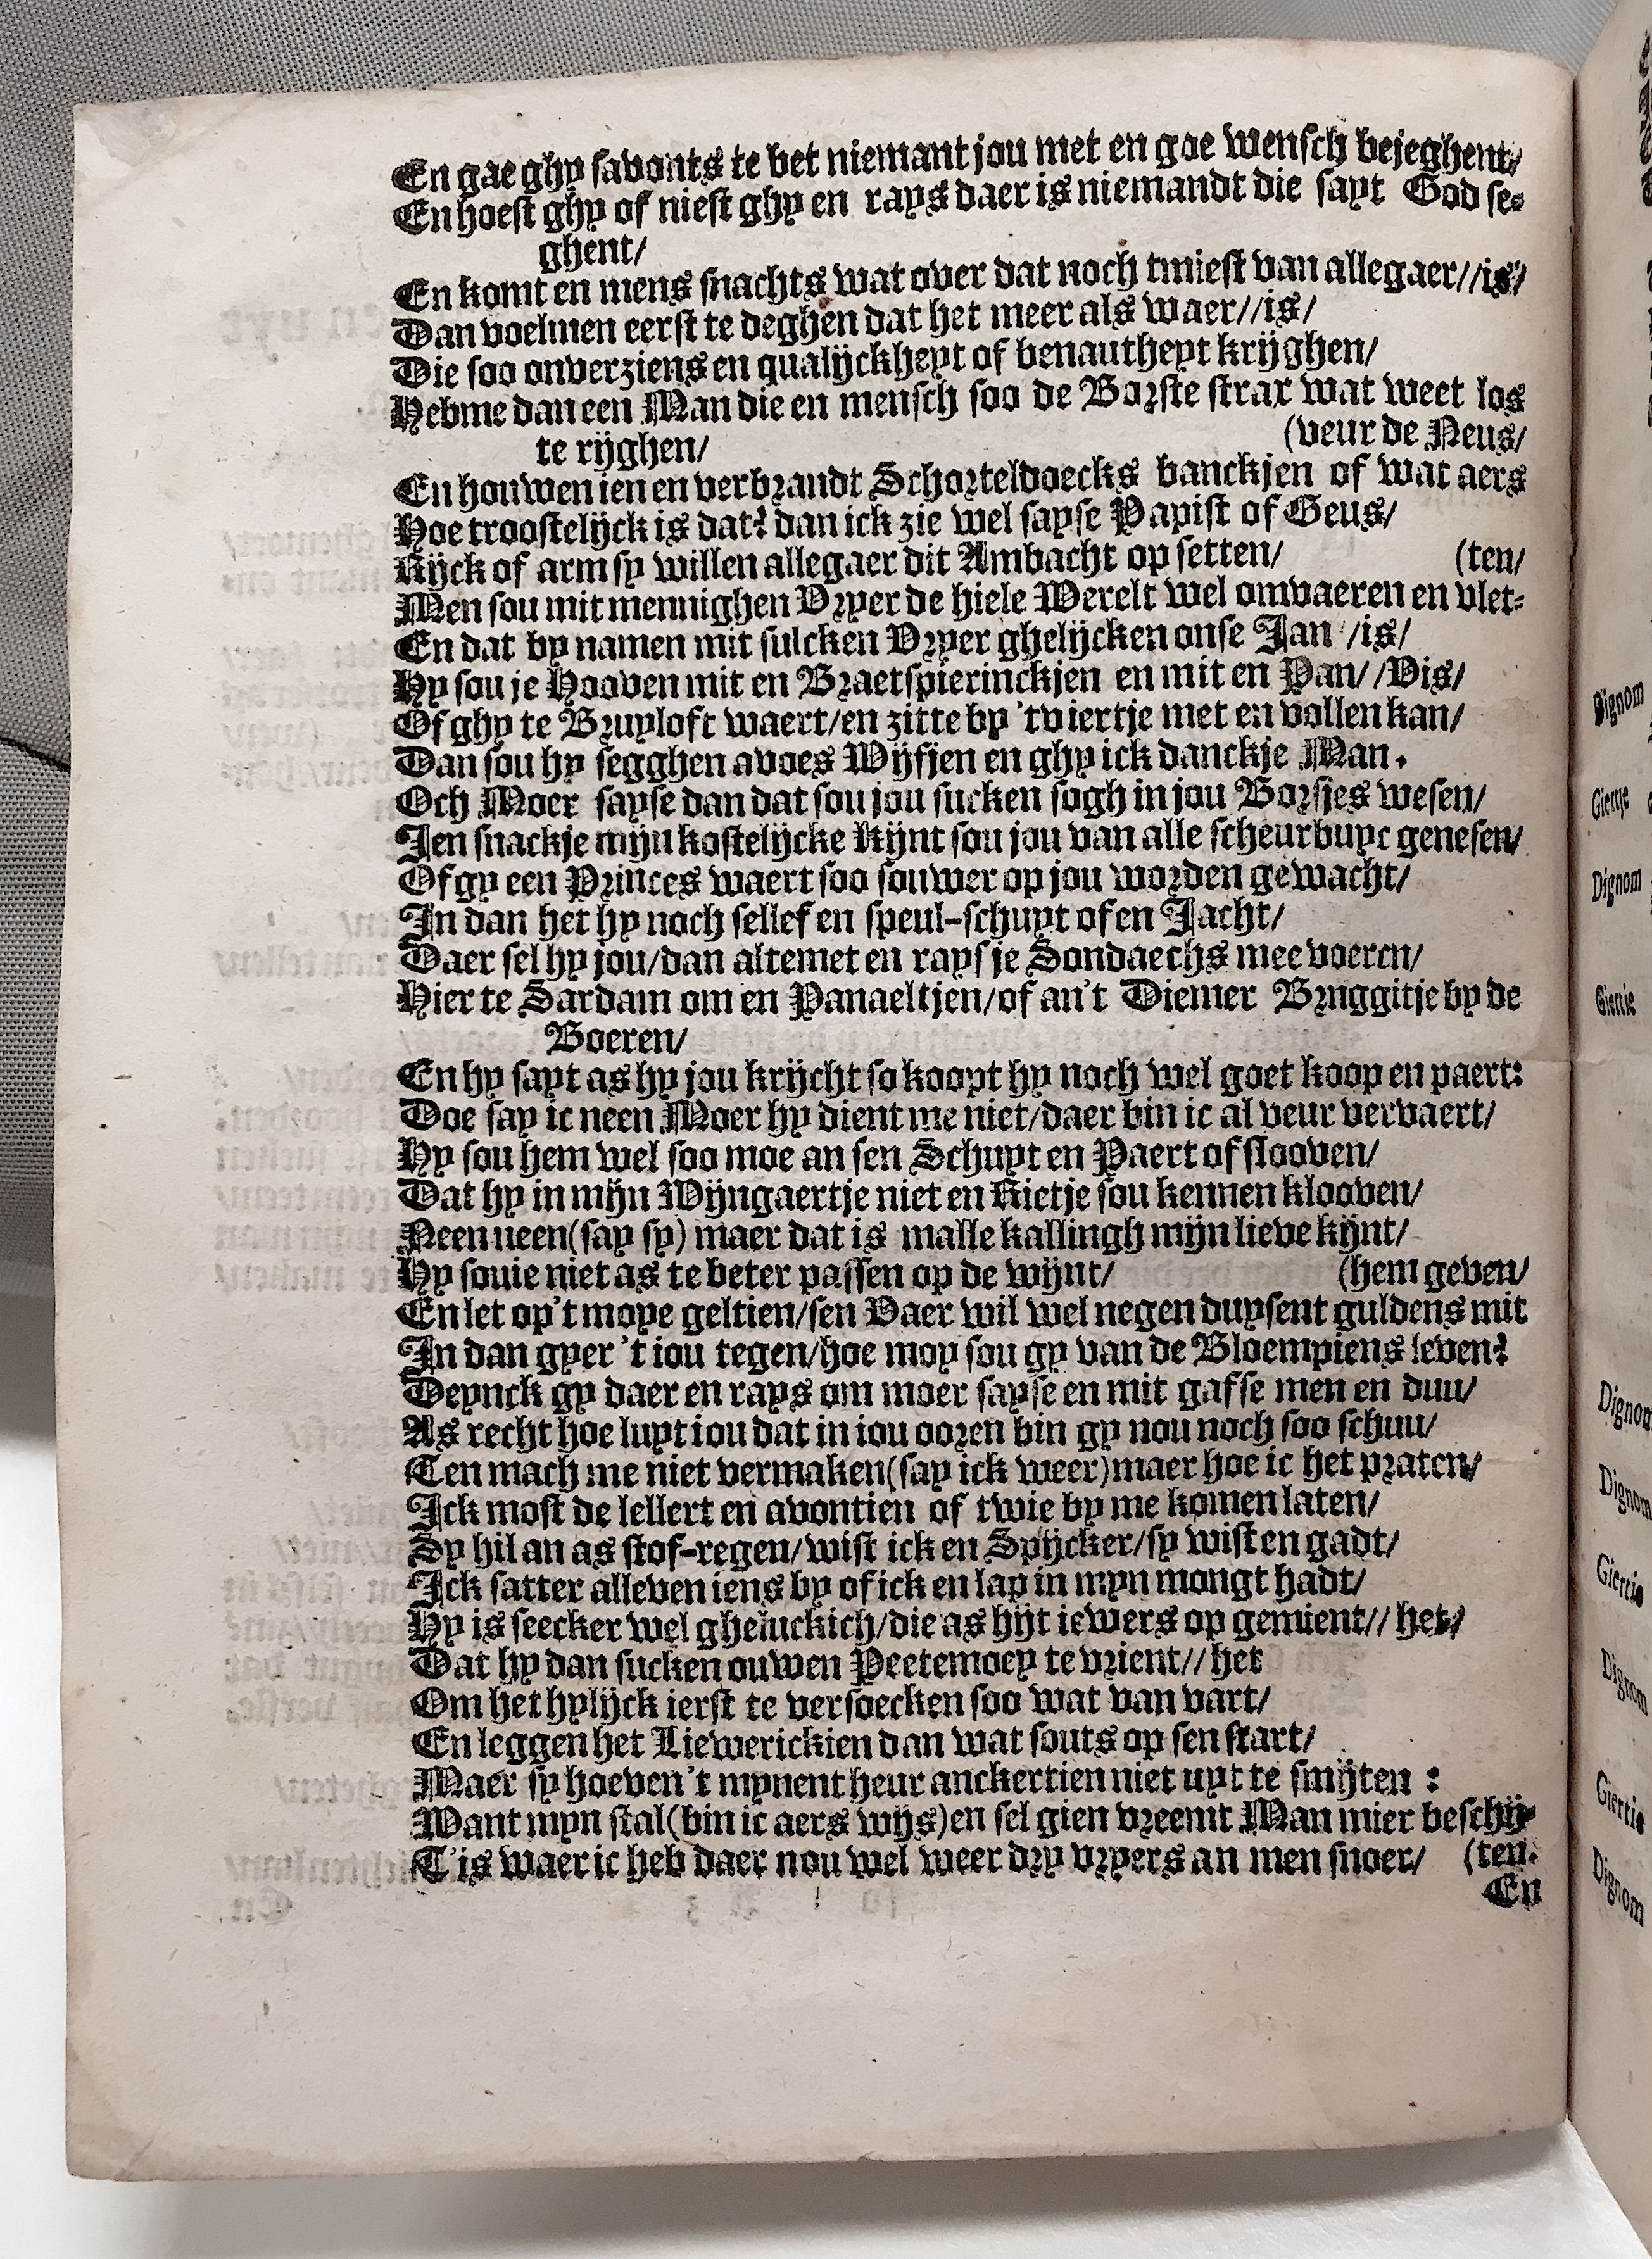 En gae ghy savonts te bet niemant jou met en goe wensch bejeghent/
En hoest ghy of niest ghy en rays daer is niemandt die sayt God se-
ghent/
En komt en mens snachts wat over dat noch tmiest van allegaer//is/
Dan voelmen eerst te deghen dat het meer als waer//is/
Die soo onverziens en qualijckheyt of benautheyt krijghen/
Hebme dan een Man die en mensch soo de Borste strax wat weet los
te rijghen/ (veur de Neus/
En houwen ien en verbrandt Schorteldoecks banckjen of wat aers
Hoe troostelijck is dat? dan ick zie wel sayse Papist of Geus/
Rijck of arm sy willen allegaer dit Ambacht op setten/ (ten/
Men sou mit mennighen Vryer de hiele Werelt wel omvaeren en vlet-
En dat by namen mit sulcken Vryer ghelijcken onse Jan /is/
Hy sou je Hooven mit en Braetspierinckjen en mit en Pan/ /Vis/
Of ghy te Bruyloft waert/en zitte by 'tviertje met en vollen kan/
Dan sou hy segghen avoes Wijfjen en ghy ick danckje Man.
Och Moer sayse dan dat sou jou sucken sogh in jou Borsjes wesen/
Jen snackje mijn kostelijcke Kijnt sou jou van alle scheurbuyc genesen/
Of gy een Princes waert soo souwer op jou worden gewacht/
In dan het hy noch sellef en speul-schuyt of en Jacht/
Daer sel hy jou/dan altemet en rays je Sondaechs mee voeren/
Hier te Sardam om en Panaeltjen/of an't Diemer Bruggitje by de
Boeren/
En hy sayt as hy jou krijcht so koopt hy noch wel goet koop en paert:
Doe say ic neen Moer hy dient me niet/daer bin ic al veur vervaert/
Hy sou hem wel soo moe an sen Schuyt en Paert of slooven/
Dat hy in mijn Wijngaertje niet en Rietje sou kennen klooven/
Neen neen(say sy) maer dat is malle kallingh mijn lieve kijnt/
Hy souie niet as te beter passen op de wijnt/ (hem geven/
En let op't moye geltien/sen Vaer wil wel negen duysent guldens mit
In dan gyer 't iou tegen/hoe moy sou gy van de Bloempiens leven?
Deynck gy daer en rays om moer sayse en mit gafse men en duu/
As recht hoe luyt iou dat in iou ooren bin gy nou noch soo schuu/
Ten mach me niet vermaken(say ick weer)maer hoe ic het praten/
Ick most de lellert en avontien of twie by me komen laten/
Sy hil an as stof-regen/wist ick en Spijcker/sy wist en gadt/
Ick satter alleven iens by of ick en lap in myn mongt hadt/
Hy is seecker wel gheluckich/die as hijt iewers op gemient// het/
Dat hy dan sucken ouwen Peetemoey te vrient// het
Om het hylijck ierst te versoecken soo wat van vart/
En leggen het Liewerickien dan wat souts op sen start/
Maer sy hoeven't mynent heur anckertien niet uyt te smijten :
Want myn stal(bin ic aers wijs)en sel gien vreemt Man mier beschij-
T'is waer ic heb daer nou wel weer dry vryers an men snoer/ (ten.
En
Dignom
Giertje
Dignom
Giertie
Dignom
Dignom
Giertie
Dignom
Giertie
Dignom